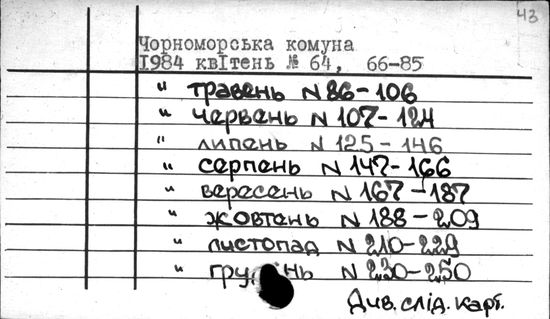 43
Чорноморська комуна
I984 квІтень № 64, 66-85
" травень N 86-106
" червень N 107-124
" липень N 125-146
" серпень N 147-166
" вересень N 167-187
" жовтень N 188-209
" листопад N 210-229
" грудень N 230-250
Див. слід. карт.